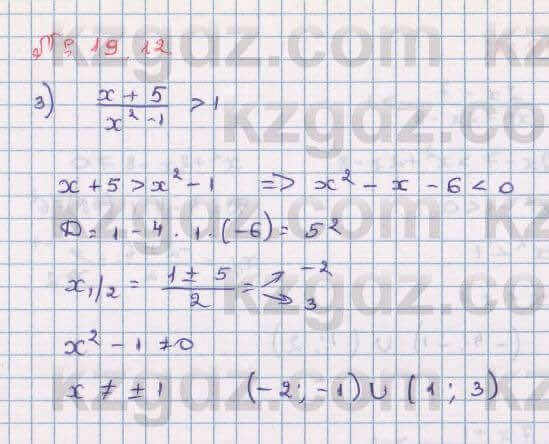 № 19.12
3) (x + 5)/(x² - 1) > 1
x + 5 > x² - 1 => x² - x - 6 < 0
D = 1 - 4 · 1 · (-6) = 5²
x₁/₂ = (1 ± 5)/2 = -2
3
x² - 1 ≠ 0
x ≠ ± 1 (-2; -1) ∪ (1; 3)
kzgdz.com
kzgdz.com
kzgdz.com
kzgdz.com
kzgdz.com
kzgdz.com